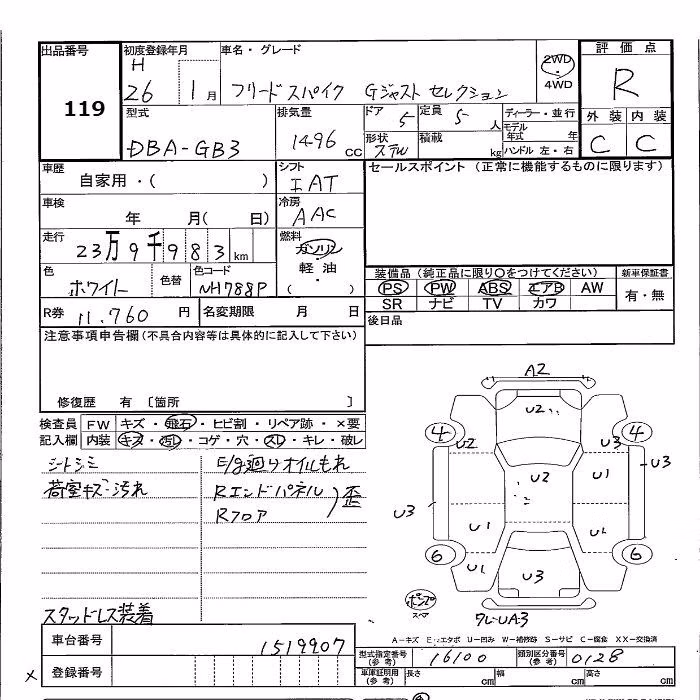 出品番号 初度登録年月 車名・グレード 2WD ・ 4WD 評価点
119 H 26 1月 フリードスパイク Gジャスト セレクション R
型式 排気量 ドア 5 定員 5人 ディーラー・並行 外装 内装
DBA-GB3 1496 cc 形状 ステW 積載 kg モデル年式 年 ハンドル 左・右 C C
車歴 自家用・( ) シフト IAT セールスポイント (正常に機能するものに限ります)
車検 年 月( 日) 冷房 AAC
走行 23万9千983km 燃料 ガソリン ・ 軽油 ( )
色 ホワイト 色替 色コード NH788P 装備品 (純正品に限り○をつけてください) 新車保証書
PS PW ABS エアB AW 有・無
SR ナビ TV カワ
R券 11,760円 名変期限 月 日 後日品
注意事項申告欄(不具合内容等は具体的に記入して下さい)
修復歴 有 〔箇所 〕
検査員 FW キズ・飛石・ヒビ割・リペア跡・×要
記入欄 内装 キズ・汚レ・コゲ・穴・スレ・キレ・破レ
シートシミ E/g廻りオイルもれ
荷室キズ・汚れ Rエンドパネル 歪
Rフロア
スタッドレス装着
A2
U2
4 4
U2 U3
U2 U1 U3
U3
U1 U1
6 6
U1 U3
ポンプ スペア
クレーUA3
A-キズ E-エクボ U-凹ミ W-補修跡 S-サビ C-腐食 XX-交換済
車台番号 1519907 型式指定番号(参考) 16100 類別区分番号(参考) 0128
× 登録番号 車庫証明用(参考) 長さ cm 幅 cm 高さ cm